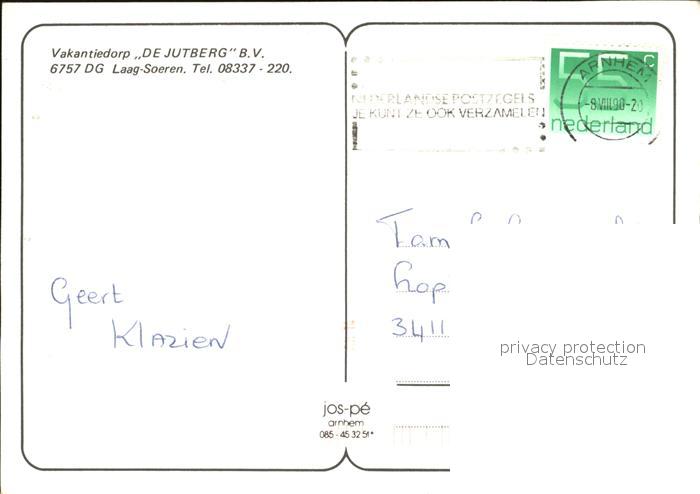 Vakantiedorp „DE JUTBERG" B.V.
6757 DG Laag-Soeren. Tel. 08337 - 220.
NEDERLANDSE POSTZEGELS
JE KUNT ZE OOK VERZAMELEN
55 c
nederland
ARNHEM
-8.VIII.90-20
Geert
Klazien
Fam
3411
privacy protection
Datenschutz
jos-pé
arnhem
085 - 45 32 51*